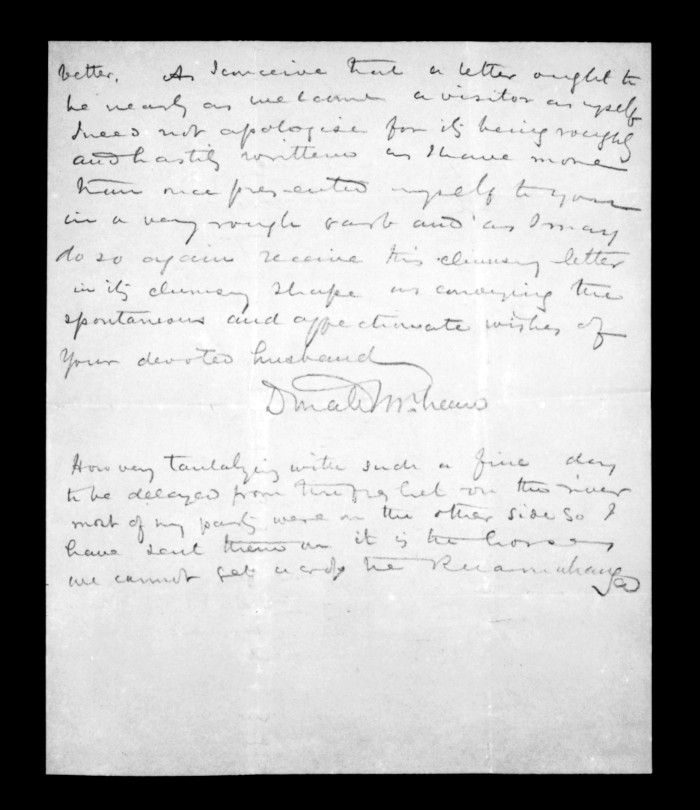 better. As I conceive that a letter ought to
be nearly as welcome a visitor as myself
I need not apologise for its being roughly
and hastily written as I have more
than once presented myself to you
in a very rough garb and as I may
do so again receive this clumsy letter
in its clumsy shape as conveying the
spontaneous and affectionate wishes of
your devoted husband
Donald McLean
How very tantalizing with such a fine day
to be delayed from the freshet in the river
most of my party were on the other side so I
have sent them on it is the horses
we cannot get across the Ruamahanga